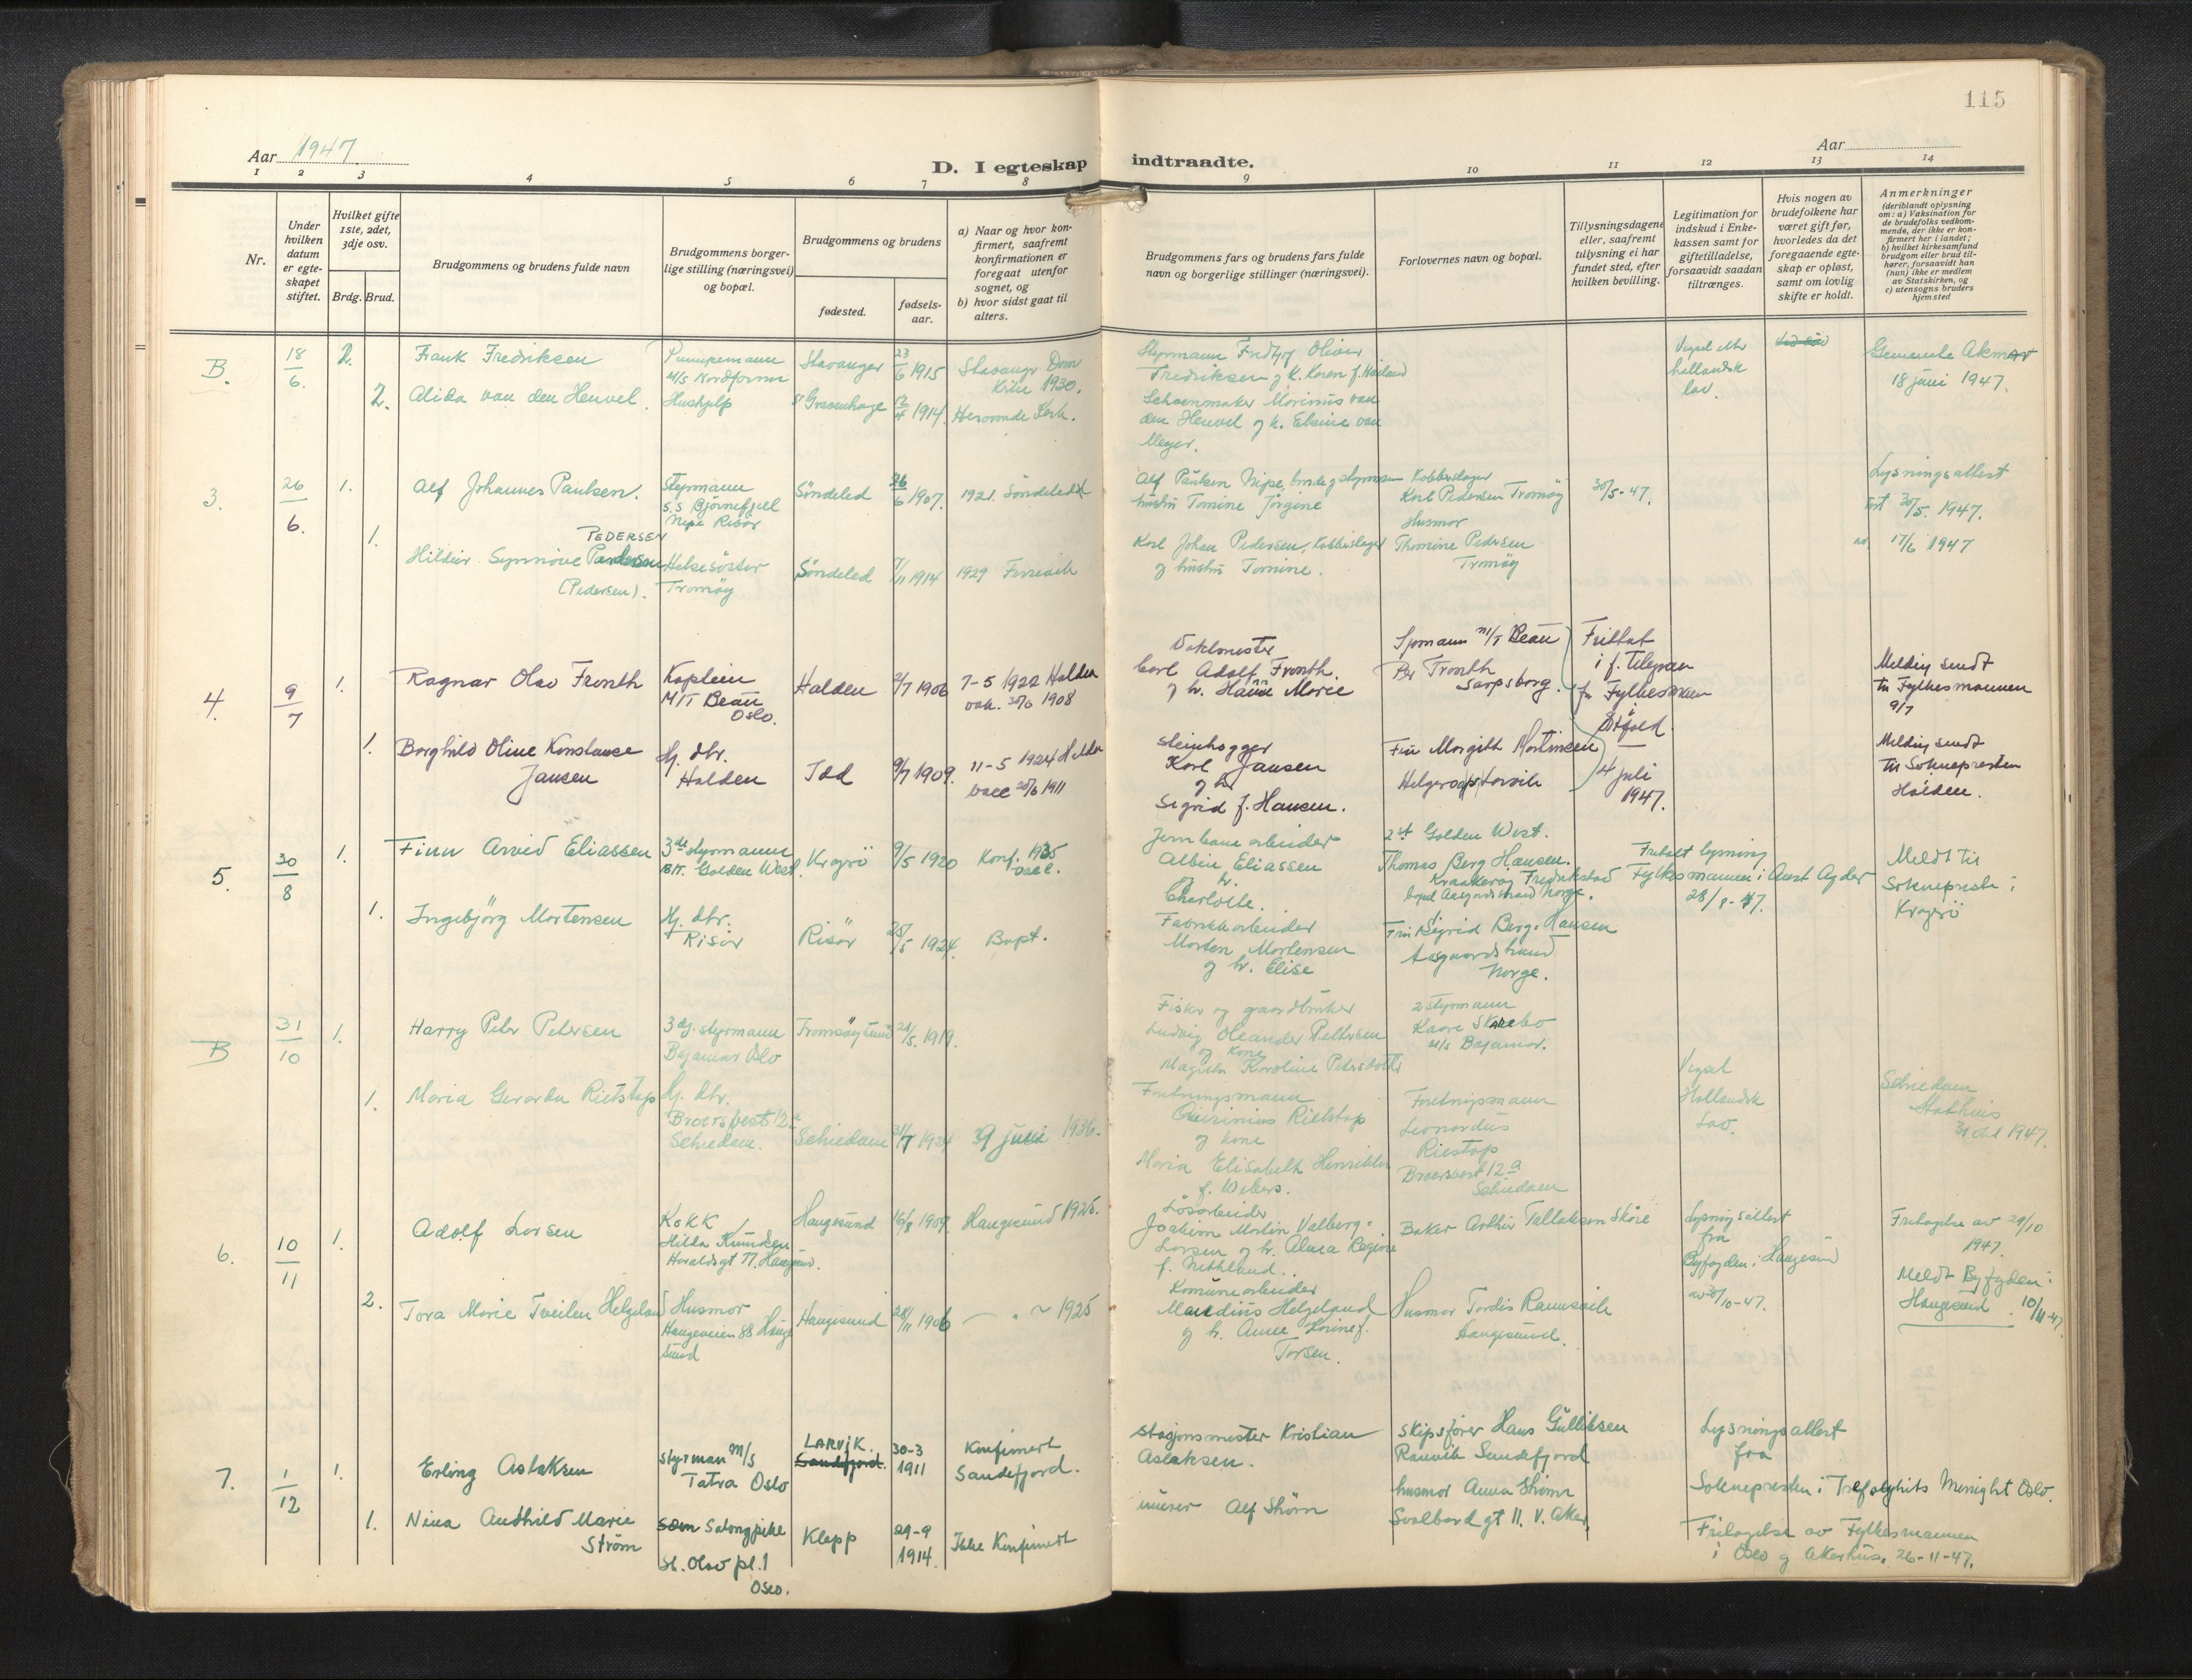 115
Aar 1947.
D. I egteskap indtraadte.
Aar
1 2 3 4 5 6 7 8 9 10 11 12 13 14
Nr.
Under hvilken datum er egteskapet stiftet.
Hvilket gifte 1ste, 2det, 3dje osv.
Brdg. Brud.
Brudgommens og brudens fulde navn
Brudgommens borgerlige stilling (næringsvei) og bopæl.
Brudgommens og brudens
fødested.
fødselsaar.
a) Naar og hvor konfirmert, saafremt konfirmationen er foregaat utenfor sognet, og
b) hvor sidst gaat til alters.
Brudgommens fars og brudens fars fulde navn og borgerlige stillinger (næringsvei).
Forlovernes navn og bopæl.
Tillysningsdagene eller, saafremt tillysning ei har fundet sted, efter hvilken bevilling.
Legitimation for indskud i Enkekassen samt for giftetilladelse, forsaavidt saadan tiltrænges.
Hvis nogen av brudefolkene har været gift før, hvorledes da det foregaaende egteskap er opløst, samt om lovlig skifte er holdt.
Anmerkninger
(deriblandt oplysning om: a) Vaksination for de brudefolks vedkommende, der ikke er konfirmert her i landet;
b) hvilket kirkesamfund brudgom eller brud tilhører, forsaavidt han (hun) ikke er medlem av Statskirken, og
c) utensogns bruders hjemsted
B. 18/6. 2. Frank Fredriksen
Pumpemann M/S Nordfonn
Stavanger 23/6 1915
Stavanger Dom Kirke 1930.
Styrmann Fredtjof Oliver
Fredriksen og k. Karen f.
Vigsel etter hollandsk lov.
Gemeente
18 juni 1947.
2. Alida van den Heuvel.
Hushjelp
s' Gravenhage 12/4 1914.
Hervormde Kerk.
Schoenmaker Marinus van
den Heuvel og k. Elsine van
Meyer.
3. 26/6. 1. Alf Johannes Paulsen.
Styrmann
S.S Bjørnefjell
Nipe Risør
Söndeled 26/6 1907. 1921. Söndeled
Alf Paulsen Nipe,
hustru Tomine Jörgine
Kobberslager
Karl Pedersen Tromöy
30/5-47.
Lysningsattest
30/5. 1947.
17/6 1947
1. PEDERSEN
Hildur Synnöve
(Pedersen).
Helsesöster
Tromöy
Söndeled 7/11 1914 1929
Karl Johan Pedersen, Kobberslager
og hustru Tomine.
Husmor
Thomine Pedersen
Tromöy
4. 9/7 1. Ragnar Olav Fronth
Kaptein
M/T Beau
Oslo.
Halden 2/7 1906
7-5 1922 Halden
vak. 30/6 1908
Vaktmester
Carl Adolf Fronth.
og h. Hanna Marie
M/T Beau
Per Tronth
Sarpsborg.
Fritatt
i f. Telegram
fra Fylkesmann
i
Østfold.
4 juli
1947.
Melding sendt
til Fylkesmannen
9/7
1. Borghild Oline Konstanse
Jansen
Hj. dtr.
Halden
Idd 9/7 1909.
11-5 1924 Halden
vacc 20/6 1911
Steinhogger
Karl Jansen
og h
Sigrid f. Hansen.
Fru Margith Martinsen
Helgeroa p/ Larvik
Melding sendt
til Soknepresten
Halden.
5. 30/8 1. Finn Arvid Eliassen
3de styrmann
M/T. Golden West.
Kragerö 9/5 1920
Konf. 1935
vacc.
Jernbane arbeider
Albin Eliassen
og h.
Charlotte.
2 st Golden West.
Thomas Berg Hansen.
Kraakeroy Fredrikstad
bopel Aasgaardstrand Norge.
Fritatt lysning
Fylkesmannen i Aust Agder
28/8-47.
Meldt til
Sokneprest i
Kragerö
1. Ingebjörg Mortensen
Hj. dtr.
Risör
Risör 25/5 1924.
Bapt.
Fabrikkarbeider
Morten Mortensen
og h. Elise
Fru Sigrid Berg-Hansen
Aasgaardstrand
Norge.
B 31/10 1. Harry Peter Petersen
3dj. styrmann
Bajamar Oslo
Tromsöysund 21/5. 1919.
Fisker og gaardbruker
Ludvig Oleander Pettersen
og Kone
Magda Karoline Pedersdatter
2 styrmann
Kaare Skarebo
M/S Bajamar.
Vigsel
Hollandsk
Lov.
Schiedam
Stathuis
31 okt 1947.
1. Maria Gerarda Rietstap
Hj. dtr.
Broersvest 12 a
Schiedam.
Schiedam 31/7 1924 9 juni 1936.
Forretningsmann
Quirinius Rietstap
og kone
Maria Elisabeth Henrikka
f. Wilers.
Forretningsmann
Leonardus
Riestap
Broersvest 12 a
Schiedam
6. 10/11 1. Adolf Larsen
Kokk
Hilda Knudsen
Haraldsgt 77. Haugesund.
Haugesund 16/8 1909. Haugesund 1925.
Lösarbeider
Joakim Martin Valberg-
Larsen og h. Alma Regine
f. Nethland..
Baker Arthur Tallaksen Skåre
Lysningsattest
fra
Byfogden i Haugesund
av 30/10-47.
Fritagelse av 29/10
1947.
Meldt Byfogden i
Haugesund. 10/11-47.
2. Tora Marie Tveiten Helgeland
Husmor
Haugeveien 88 Haugesund
Haugesund 28/11 1906 — " ~ 1925
Komunearbeider
Mandius Helgeland
og h. Anne Karine f.
Torsen.
Husmor Tordis Ramsvik
Haugesund.
7. 1/12 1. Erling Aslaksen
Styrman M/S
Tatra Oslo
LARVIK.
Sandefjord.
30-3
1911
Konfirmert
Sandefjord.
Stasjonsmester Kristian
Aslaksen.
Skipsfører Hans Gulliksen
Ranvik Sandefjord
Lysningsattest
fra
Sokneprsten i Trefoldighets Menighet Oslo.
1. Nina Audhild Marie
Strøm
Salongpike
St. Olav pl. 1
Oslo.
Klepp
29-9
1914.
Ikke Konfirmert
murer Alf Strøm
husmor Anna Strøm
Svalbard gt 11. V. Aker.
Fritagelse av Fylkesmannen
i Oslo og Akershus. 26-11-47.